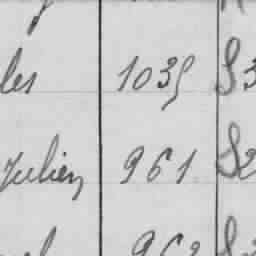 les 1035 S3
Julien 961 S2
962 S